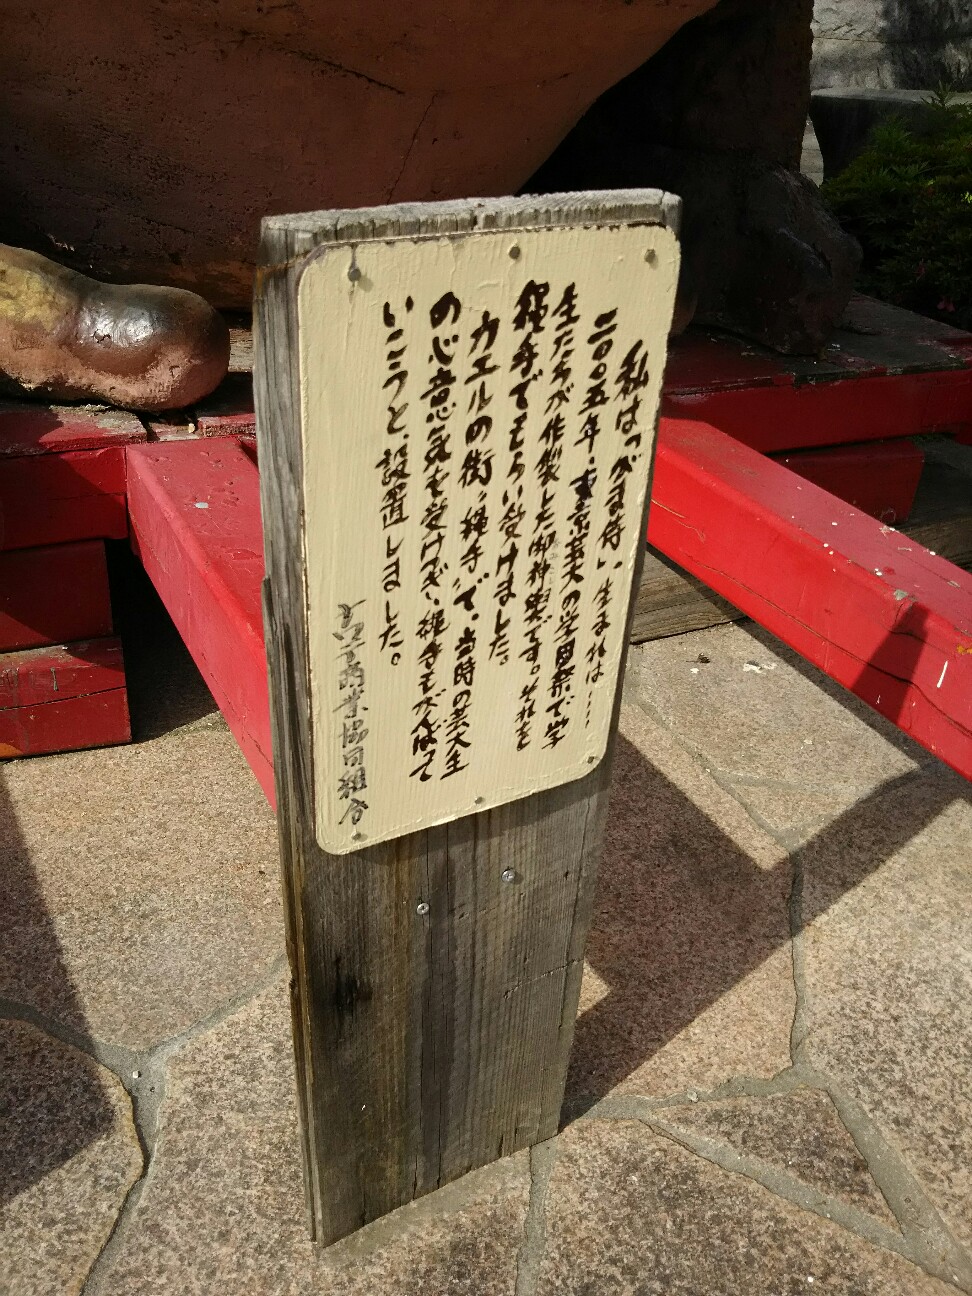 私は「がま侍」生まれは……
二〇〇五年・東京芸大の学園祭で学
生たちが作製した御神輿です。それを
縄手でもらい受けました。
カエルの街〝縄手〟で、当時の芸大生
の心意気を受けつぎ、縄手もがんばって
いこうと、設置しました。
商業協同組合